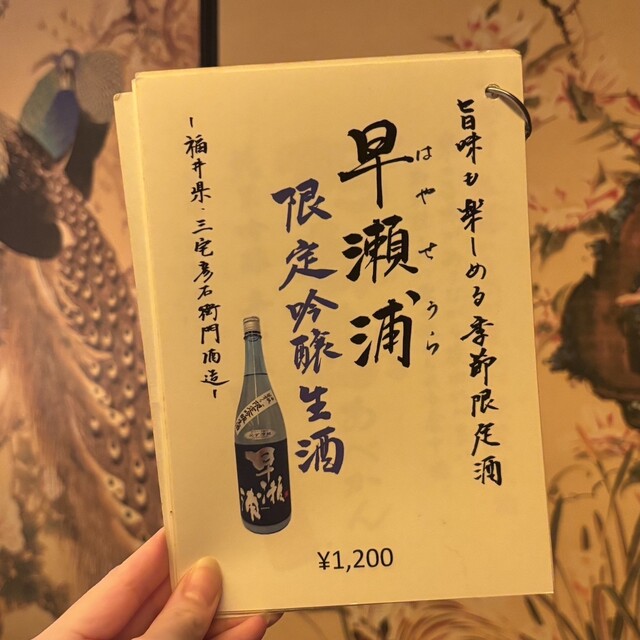 旨味も楽しめる季節限定酒
早瀬浦
はやせうら
限定吟醸生酒
－福井県・三宅彦右衛門酒造－
早瀬浦
¥1,200